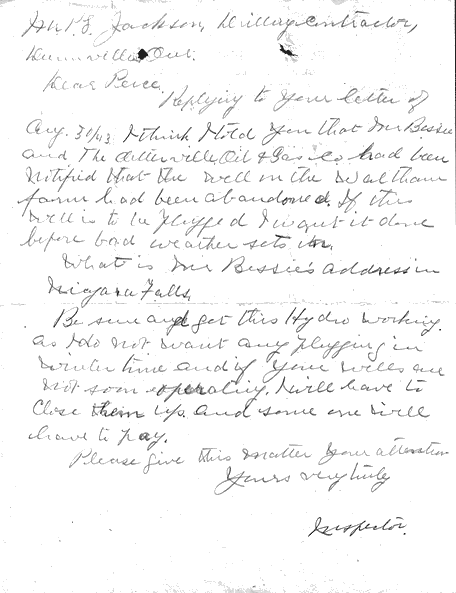 Mr P.J. Jackson, Drilling Contractor,
Dunnville Ont.
Dear Perce.
Replying to your letter of
Aug. 31/43 I think I told you that Mr Bessie
and The Attercliffe Oil & Gas Co. had been
notified that the well on the Waltham
farm had been abandoned. If this
well is to be plugged I want it done
before bad weather sets in.
What is Mr Bessie's address in
Niagara Falls.
Be sure and get this Hydro working
as I do not want any plugging in
winter time and if your wells are
not soon operating, I will have to
close them up and some one will
have to pay.
Please give this matter your attention
Yours very truly
Inspector.